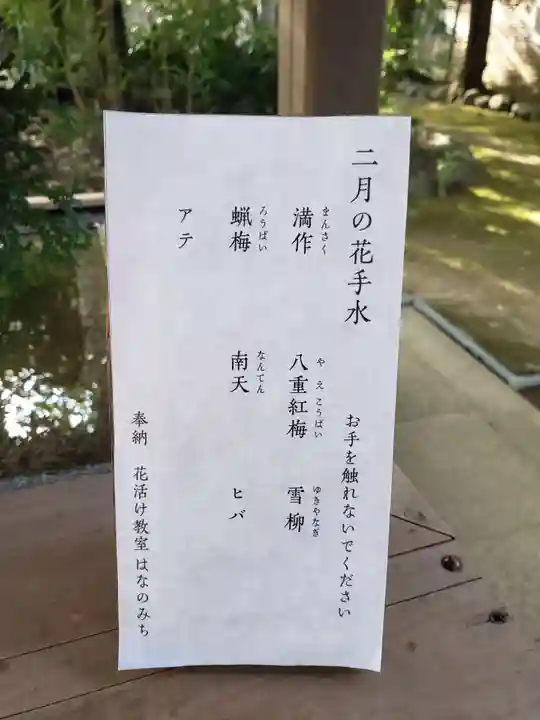 二月の花手水
お手を触れないでください
満作 八重紅梅 雪柳
まんさく やえこうばい ゆきやなぎ
蝋梅 南天 ヒバ
ろうばい なんてん
アテ
奉納 花活け教室 はなのみち